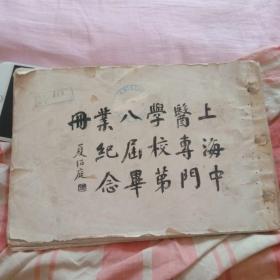 上海中
醫專門
學校第
八屆畢
業紀念
冊
夏伯庭